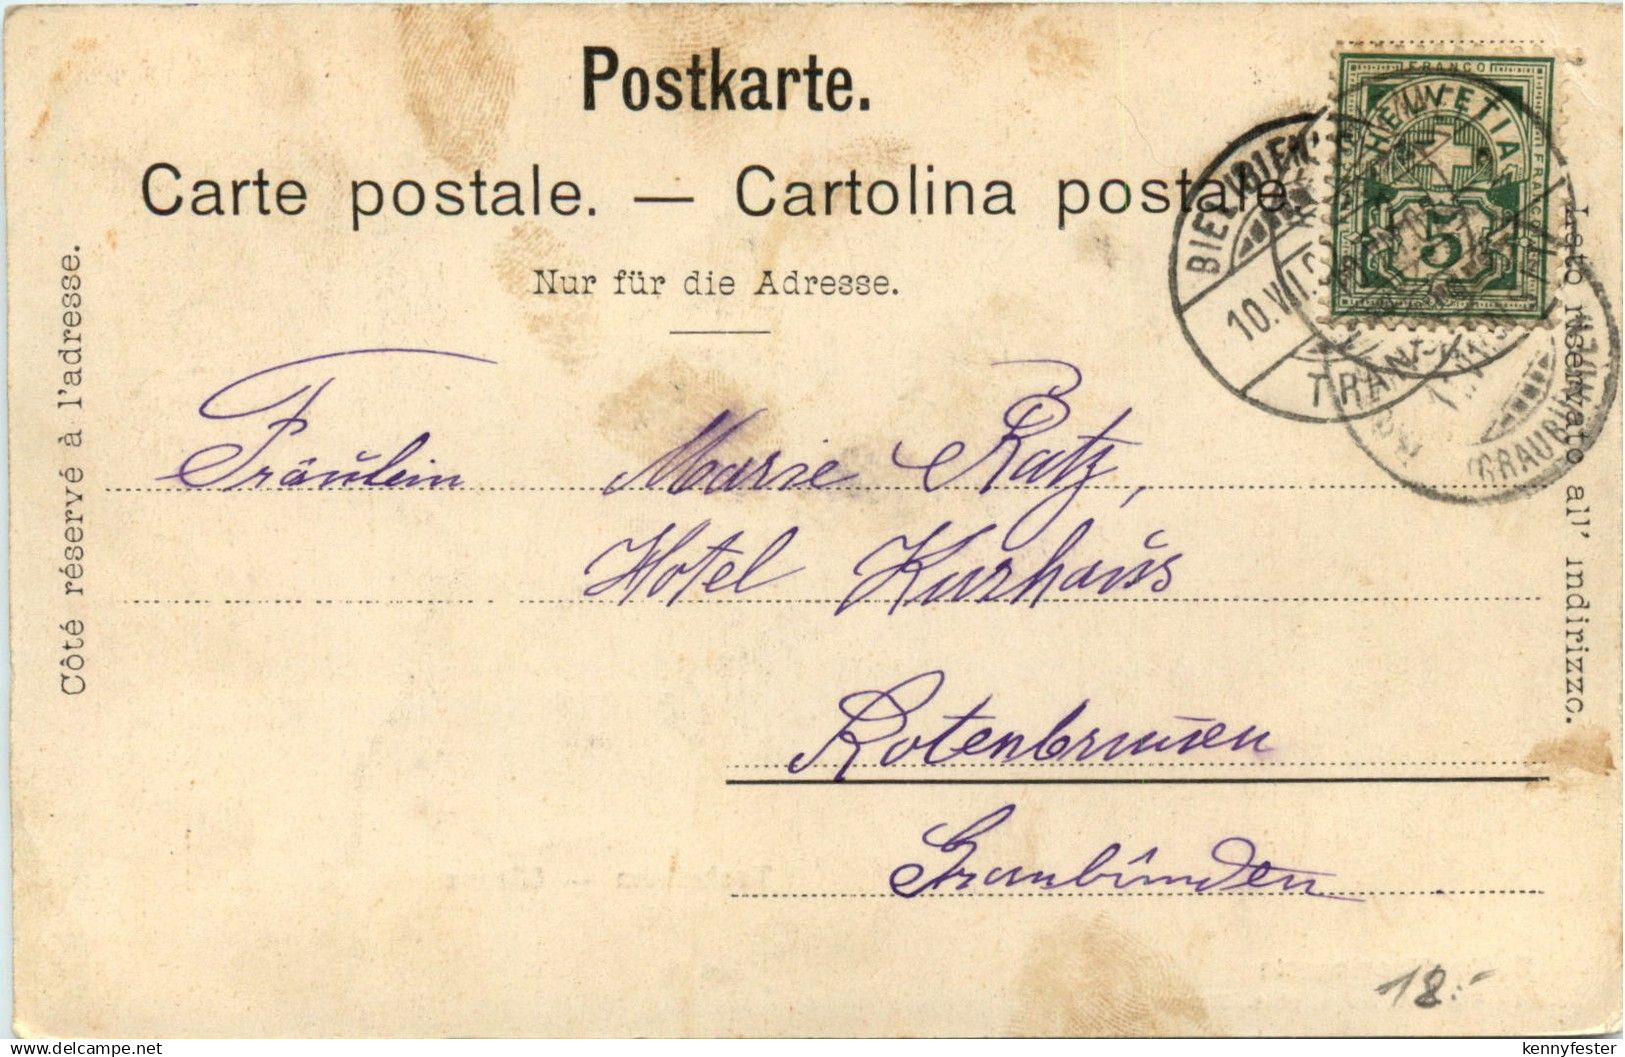 Postkarte.
Carte postale. — Cartolina postale
Nur für die Adresse.
Côté réservé à l'adresse.
Lato riservato al' indirizzo.
Fräulein Marie Ratz,
Hotel Kurhaus
Rotenbrunnen
Graubünden.
FRANCO
HELVETIA
5
BIEL (BIENNE)
10.VII.
TRANSIT
(GRAUBÜNDEN)
18.-
kennyfester